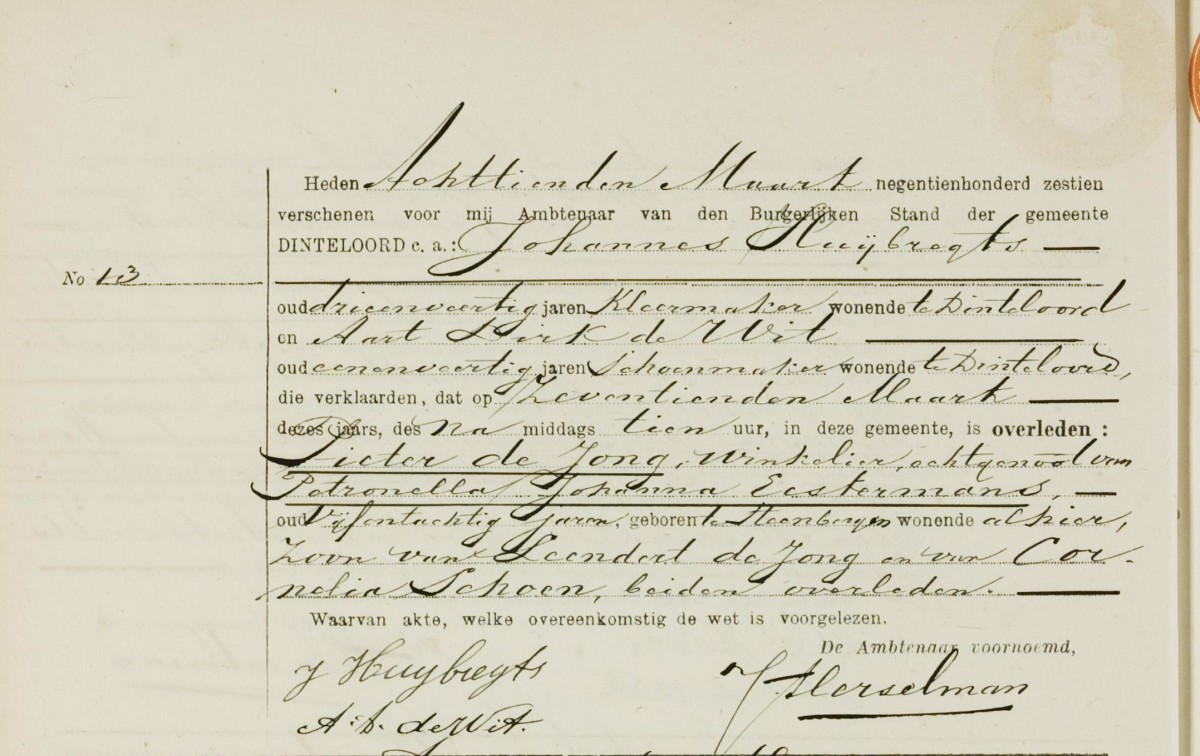 Heden Achttienden Maart negentienhonderd zestien
verschenen voor mij Ambtenaar van den Burgerlijken Stand der gemeente
DINTELOORD c. a.: Johannes Huijbregts
No 13
oud drieenveertig jaren Kleermaker wonende te Dinteloord
en Aart Dirk de Wit
oud eenenveertig jaren Schoenmaker wonende te Dinteloord,
die verklaarden, dat op Zeventienden Maart
dezes jaars, des na middags tien uur, in deze gemeente, is overleden:
Pieter de Jong, winkelier, echtgenoot van
Petronella Johanna Eestermans,
oud Vijfentachtig jaren, geboren te Steenbergen wonende alhier,
zoon van Leendert de Jong en van Cor-
nelia Schoen, beiden overleden.
Waarvan akte, welke overeenkomstig de wet is voorgelezen.
De Ambtenaar voornoemd,
J Huybregts
Herselman
A. D. de Wit.